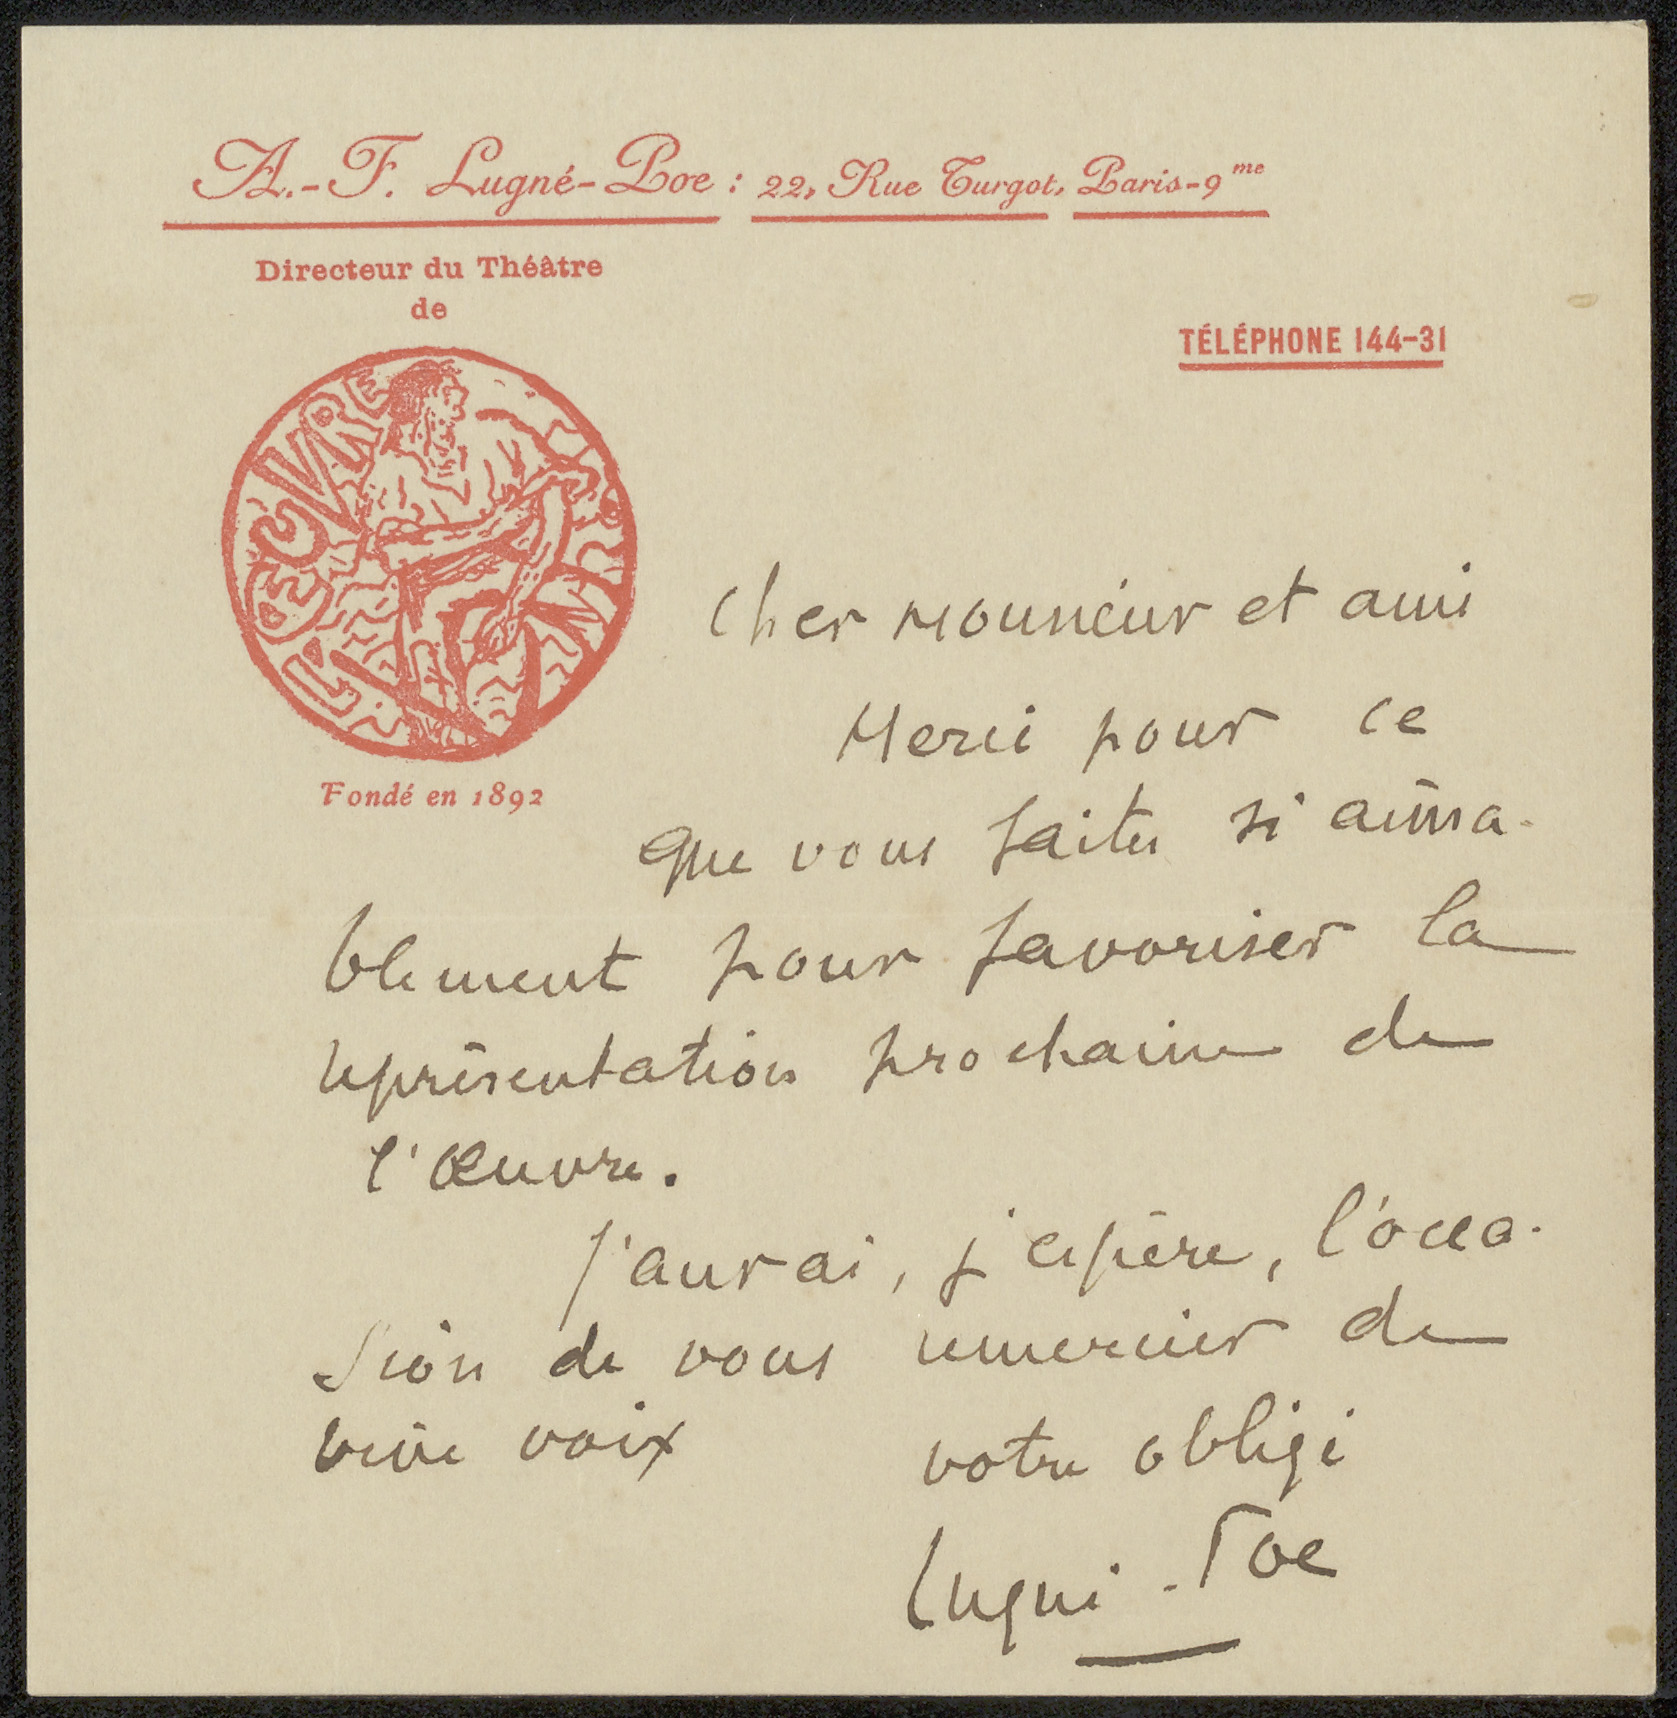 A.-F. Lugné-Poe : 22, Rue Turgot, Paris-9me
Directeur du Théâtre
de
TÉLÉPHONE 144-31
L'OEUVRE
Fondé en 1892
Cher Monsieur et ami
Merci pour ce
que vous faites si aima-
blement pour favoriser la
représentation prochaine de
l'Œuvre.
J'aurai, j'espère, l'occa-
sion de vous remercier de
vive voix
votre obligé
Lugné-Poe